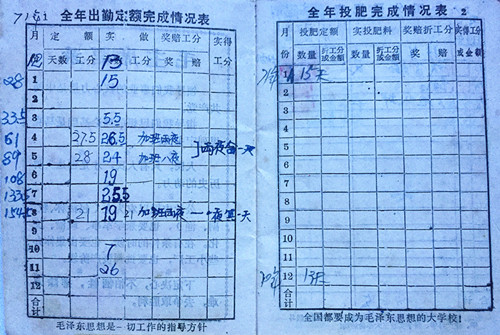 全年出勤定额完成情况表
月 定额 实做 奖赔工分 实得
份 天数 工分 天 工分 奖 赔 工分
28 1 15
2
33.5 3 5.5
61 4 27.5 26.5 加班两夜
89 5 28 24 加班八夜 ]两夜合一天
108 6 19
133.5 7 25.5
154.5 8 21 19 21 加班两夜 一夜算一天
9
10 7
11 26
合计
毛泽东思想是一切工作的指导方针
全年投肥完成情况表 2
月 投肥定额 实投肥料 奖赔折工分 实得工分
份 数量 折工分或金额 数量 折工分或金额 奖 赔 或金额
1 15天
2
3
4
5
6
7
8
9
10
11
12 13天
合计
全国都要成为毛泽东思想的大学校!